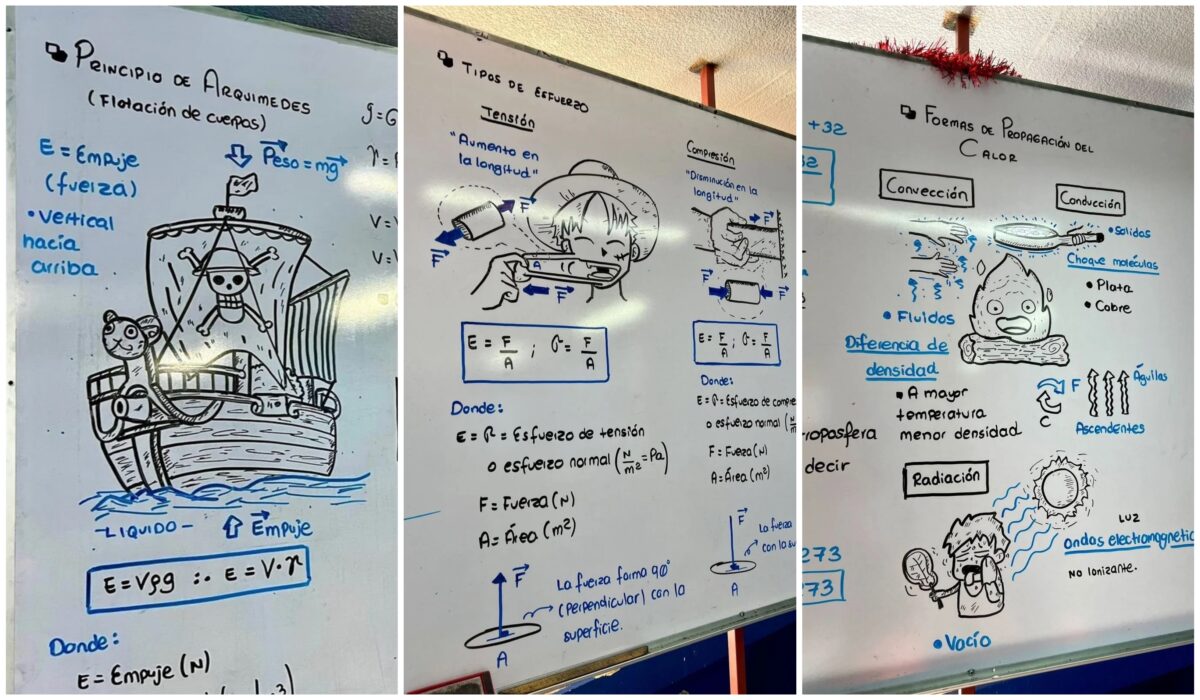 PRINCIPIO DE ARQUIMEDES
(Flotación de cuerpos)
E = Empuje
(fuerza)
• Vertical
hacia
arriba
Peso = mg
g = G
V =
V =
-LIQUIDO-
Empuje
E = Vρg ∴ E = V·γ
Donde:
E = Empuje (N)
TIPOS DE ESFUERZO
Tensión
"Aumento en
la longitud"
F
F
A
F
E = F/A ; σ = F/A
Donde:
E = σ = Esfuerzo de tensión
o esfuerzo normal (N/m² = Pa)
F = Fuerza (N)
A = Área (m²)
F
A
La fuerza forma 90°
(perpendicular) con la
superficie.
Compresión
"Disminución en la
longitud"
F
F
F
E = F/A ; σ = F/A
Donde:
E = σ = Esfuerzo de compre
o esfuerzo normal (N/m
F = Fueza (N)
A = Área (m²)
F
A
La fuerza
con la su
+32
32
roposfera
decir
273
73
FORMAS DE PROPAGACIÓN DEL
CALOR
Convección
• Fluidos
Diferencia de
densidad
• A mayor
temperatura
menor densidad
Conducción
• Solidos
Choque moléculas
• Plata
• Cobre
F
C
Águilas
Ascendentes
Radiación
LUZ
ondas electromagnetic
NO Ionizante.
• Vacío